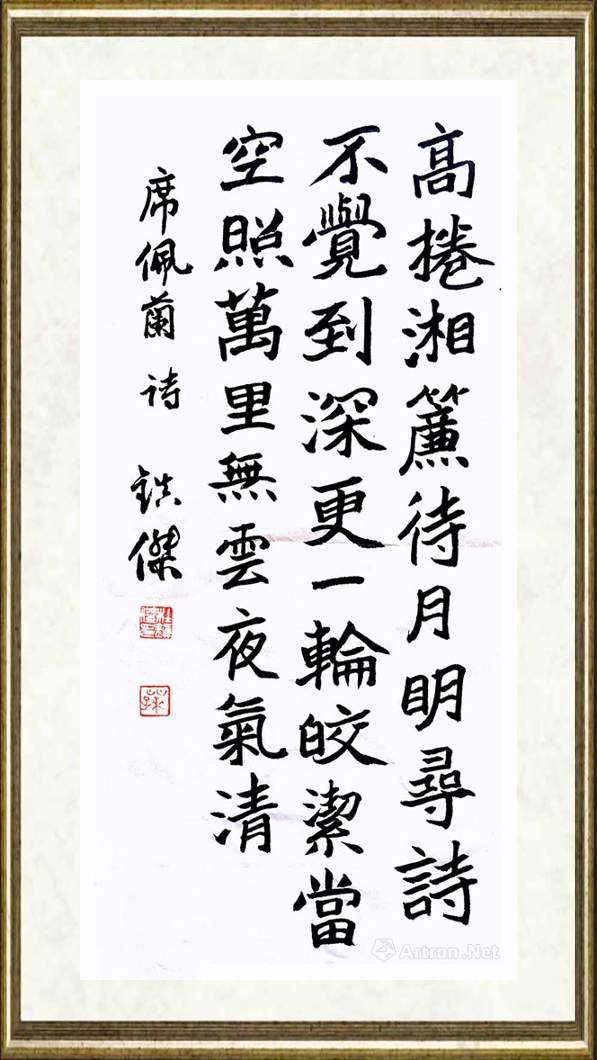 高捲湘簾待月明尋詩
不覺到深更一輪皎潔當
空照萬里無雲夜氣清
席佩蘭诗 傑
Artron.Net